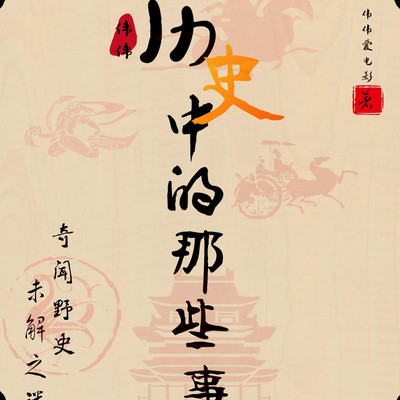 伟伟
历史中的那些事
伟伟爱电影
著
奇闻野史
未解之谜